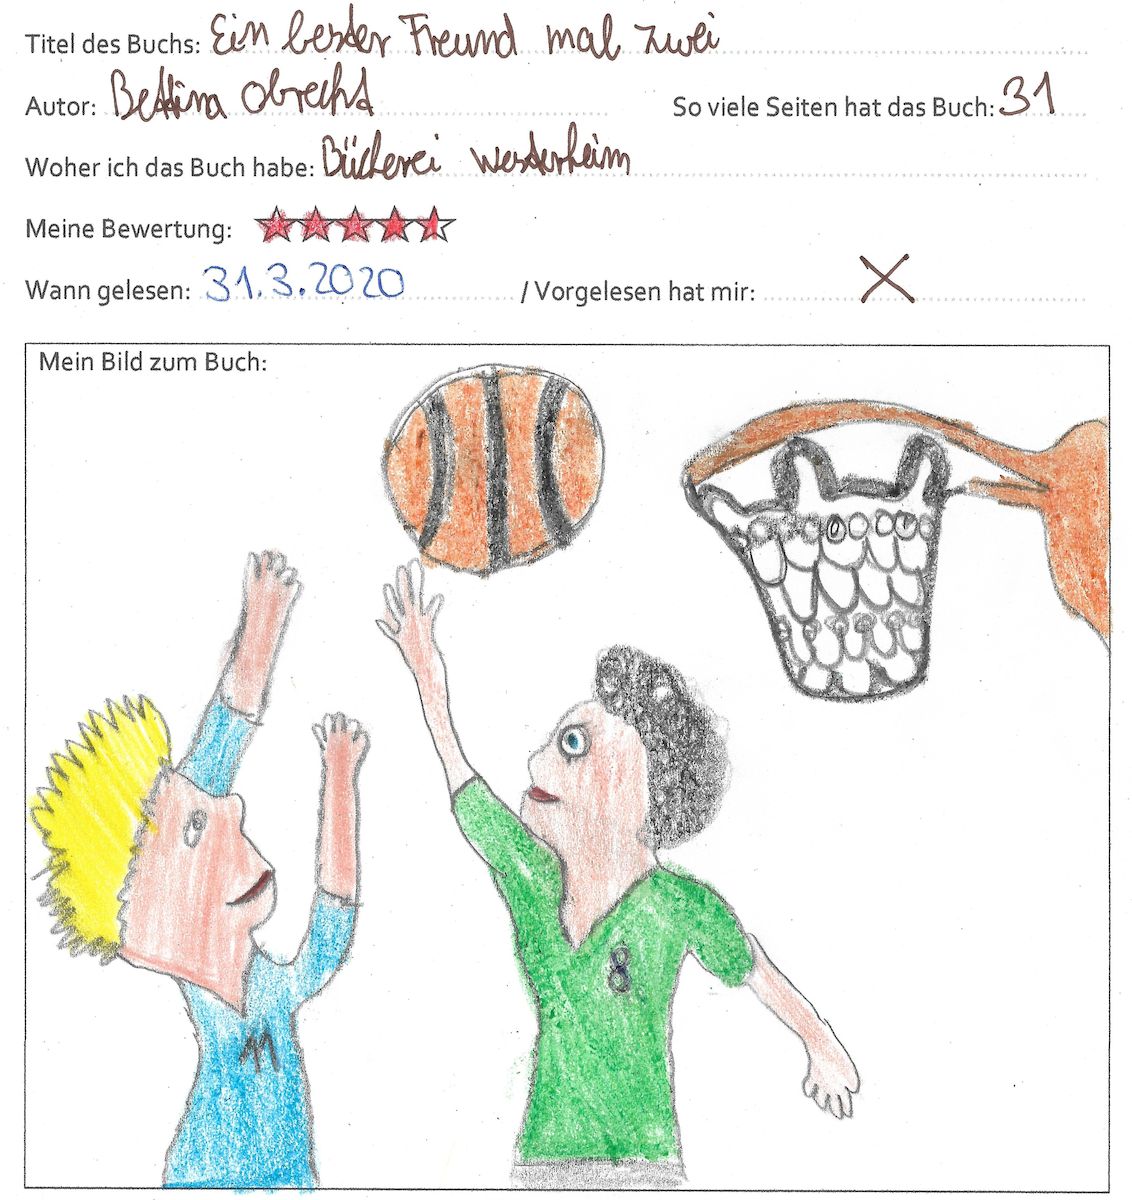 Titel des Buchs: Ein bester Freund mal zwei
Autor: Bettina Obrecht So viele Seiten hat das Buch: 31
Woher ich das Buch habe: Bücherei Westerheim
Meine Bewertung:
Wann gelesen: 31.3.2020 / Vorgelesen hat mir: X
Mein Bild zum Buch:
8
11